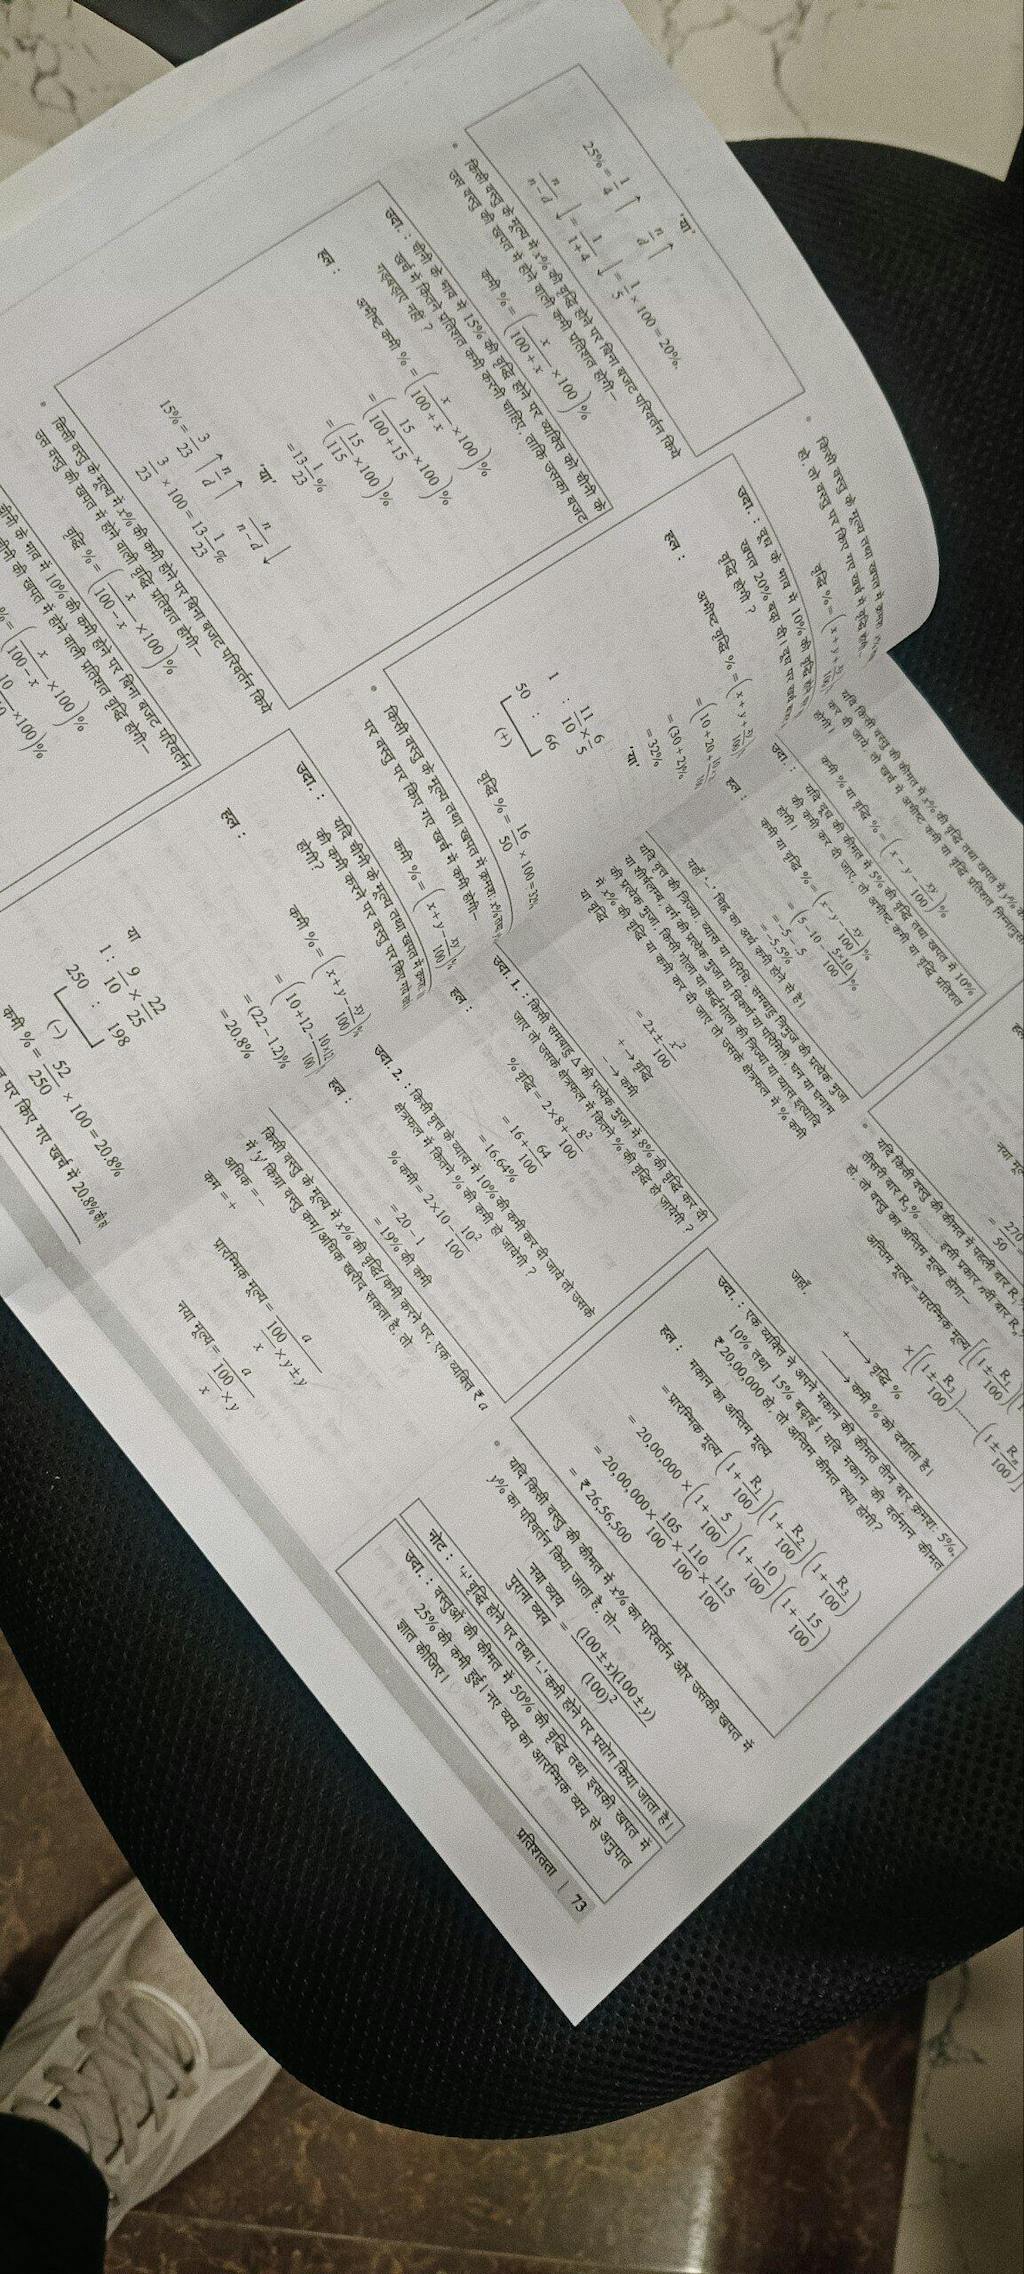 'या'
25% = 1/4 ↑ n/d ↑
n/(n−d) ↓ = 1/(1+4) ↓ = 1/5 × 100 = 20%.
• किसी वस्तु के मूल्य में x% की वृद्धि होने पर बिना बजट परिवर्तन किये
उस वस्तु की खपत में होने वाली कमी प्रतिशत होगी–
कमी % = (x/(100 + x) ×100)%
उदा. : चीनी के भाव में 15% की वृद्धि होने पर व्यक्ति को चीनी के
खर्च में कितने प्रतिशत कमी करनी चाहिए, ताकि उसका बजट
गड़बड़ाए नहीं ?
हल :
अभीष्ट कमी % = (x/(100 + x) ×100)%
= (15/(100+15) ×100)%
= (15/115 ×100)%
= 13 1/23 %
'या'
15% = 3/23 ↑ n/d ↑ n/(n−d) ↓
3/23 × 100 = 13 1/23 %
• किसी वस्तु के मूल्य में x% की कमी होने पर बिना बजट परिवर्तन किये
उस वस्तु की खपत में होने वाली वृद्धि प्रतिशत होगी–
वृद्धि % = (x/(100 − x) ×100)%
चीनी के भाव में 10% की कमी होने पर बिना बजट परिवर्तन
चीनी की खपत में होने वाली प्रतिशत वृद्धि होगी–
% = (x/(100 − x) ×100)%
×100)%
• किसी वस्तु के मूल्य तथा खपत में क्रमशः
हो, तो वस्तु पर किए गए खर्च में वृद्धि होगी–
वृद्धि % = (x + y + xy/100)%
उदा. : दूध के भाव में 10% की वृद्धि
खपत 20% बढ़ा दी। दूध पर खर्च
वृद्धि होगी ?
हल :
अभीष्ट वृद्धि % = (x + y + xy/100)
= (10 + 20 +
= (30 + 2)%
= 32%
'या'
1 : 11/10 × 6/5
50 : 66
(+)
वृद्धि % = 16/50 × 100 = 32%
• किसी वस्तु के मूल्य तथा खपत में क्रमशः x%
पर वस्तु पर किए गए खर्च में कमी होगी–
कमी % = (x + y − xy/100)%
उदा. : यदि चीनी के मूल्य तथा खपत में क्रमशः
की कमी करने पर वस्तु पर किए गए
होगी?
हल :
कमी % = (x + y − xy/100)%
= (10+12− 10×12/100)
= (22 − 1.2)%
= 20.8%
या
1 : 9/10 × 22/25
250 : 198
(−)
कमी % = 52/250 × 100 = 20.8%
पर किए गए खर्च में 20.8%
यदि किसी वस्तु की कीमत में x% की वृद्धि तथा खपत में y%
कर दी जाये, तो खर्च में अभीष्ट कमी या वृद्धि प्रतिशत
होगी।
कमी % या वृद्धि % = (x − y − xy/100)%
उदा. : यदि दूध की कीमत में 5% की वृद्धि तथा खपत में 10%
की कमी कर दी जाए, तो अभीष्ट कमी या वृद्धि प्रतिशत
होगी।
हल :
कमी या वृद्धि % = (x − y − xy/100)%
= (5 − 10 − 5×10/100)%
= −5 − .5
= −5.5%
यहाँ '−' चिह्न का अर्थ कमी होने से है।
यदि वृत्त की त्रिज्या, व्यास या परिधि, समबाहु त्रिभुज की प्रत्येक भुजा
या शीर्षलम्ब, वर्ग की प्रत्येक भुजा या विकर्ण या परिमिती, घन या घनाभ
की प्रत्येक भुजा, किसी गोला या अर्द्धगोला की त्रिज्या या व्यास इत्यादि
में x% की वृद्धि या कमी कर दी जाए तो उसके क्षेत्रफल में % कमी
या वृद्धि
= 2x ± x²/100
+ → वृद्धि
− → कमी
उदा. 1. : किसी समबाहु Δ की प्रत्येक भुजा में 8% की वृद्धि कर दी
जाए तो उसके क्षेत्रफल में कितने % की वृद्धि हो जायेगी ?
हल :
% वृद्धि = 2×8 + 8²/100
= 16 + 64/100
= 16.64%
उदा. 2. : किसी वृत्त के व्यास में 10% की कमी कर दी जाये तो उसके
क्षेत्रफल में कितने % की कमी हो जायेगी ?
हल :
% कमी = 2×10 − 10²/100
= 20 − 1
= 19% की कमी
किसी वस्तु के मूल्य में x% की वृद्धि/कमी करने पर, एक व्यक्ति ₹ a
में 'y' किग्रा वस्तु कम/अधिक खरीद सकता है, तो
अधिक = −
कम = +
प्रारम्भिक मूल्य = a/(100/x × y ± y)
नया मूल्य = a/(100/x × y)
नया मू
= 270/50
• यदि किसी वस्तु की कीमत में पहली बार R₁%
तीसरी बार R₃% ......... इसी प्रकार nवीं बार Rₙ
हो, तो वस्तु का अन्तिम मूल्य होगा–
अन्तिम मूल्य = प्रारम्भिक मूल्य [(1 ± R₁/100)(1
× [(1 ± R₃/100).......(1 ± Rₙ/100)]
जहाँ,
+ ⟶ वृद्धि %
− ⟶ कमी % को दर्शाता है।
उदा. : एक व्यक्ति ने अपने मकान की कीमत तीन बार क्रमशः 5%,
10% तथा 15% बढ़ाई। यदि मकान की वर्तमान कीमत
₹ 20,00,000 हो, तो अन्तिम कीमत क्या होगी?
हल : मकान का अन्तिम मूल्य
= प्रारम्भिक मूल्य (1 + R₁/100)(1 + R₂/100)(1 + R₃/100)
= 20,00,000 × (1 + 5/100)(1 + 10/100)(1 + 15/100)
= 20,00,000 × 105/100 × 110/100 × 115/100
= ₹ 26,56,500
• यदि किसी वस्तु की कीमत में x% का परिवर्तन और उसकी खपत में
y% का परिवर्तन किया जाता है, तो–
नया व्यय/पुराना व्यय = (100 ± x)(100 ± y)/(100)²
नोट : '+' वृद्धि होने पर तथा '−' कमी होने पर प्रयोग किया जाता है।
उदा. : वस्तुओं की कीमत में 50% की वृद्धि तथा इसकी खपत में
25% की कमी हुई। नए व्यय का आरम्भिक व्यय से अनुपात
ज्ञात कीजिए।
प्रतिशतता | 73